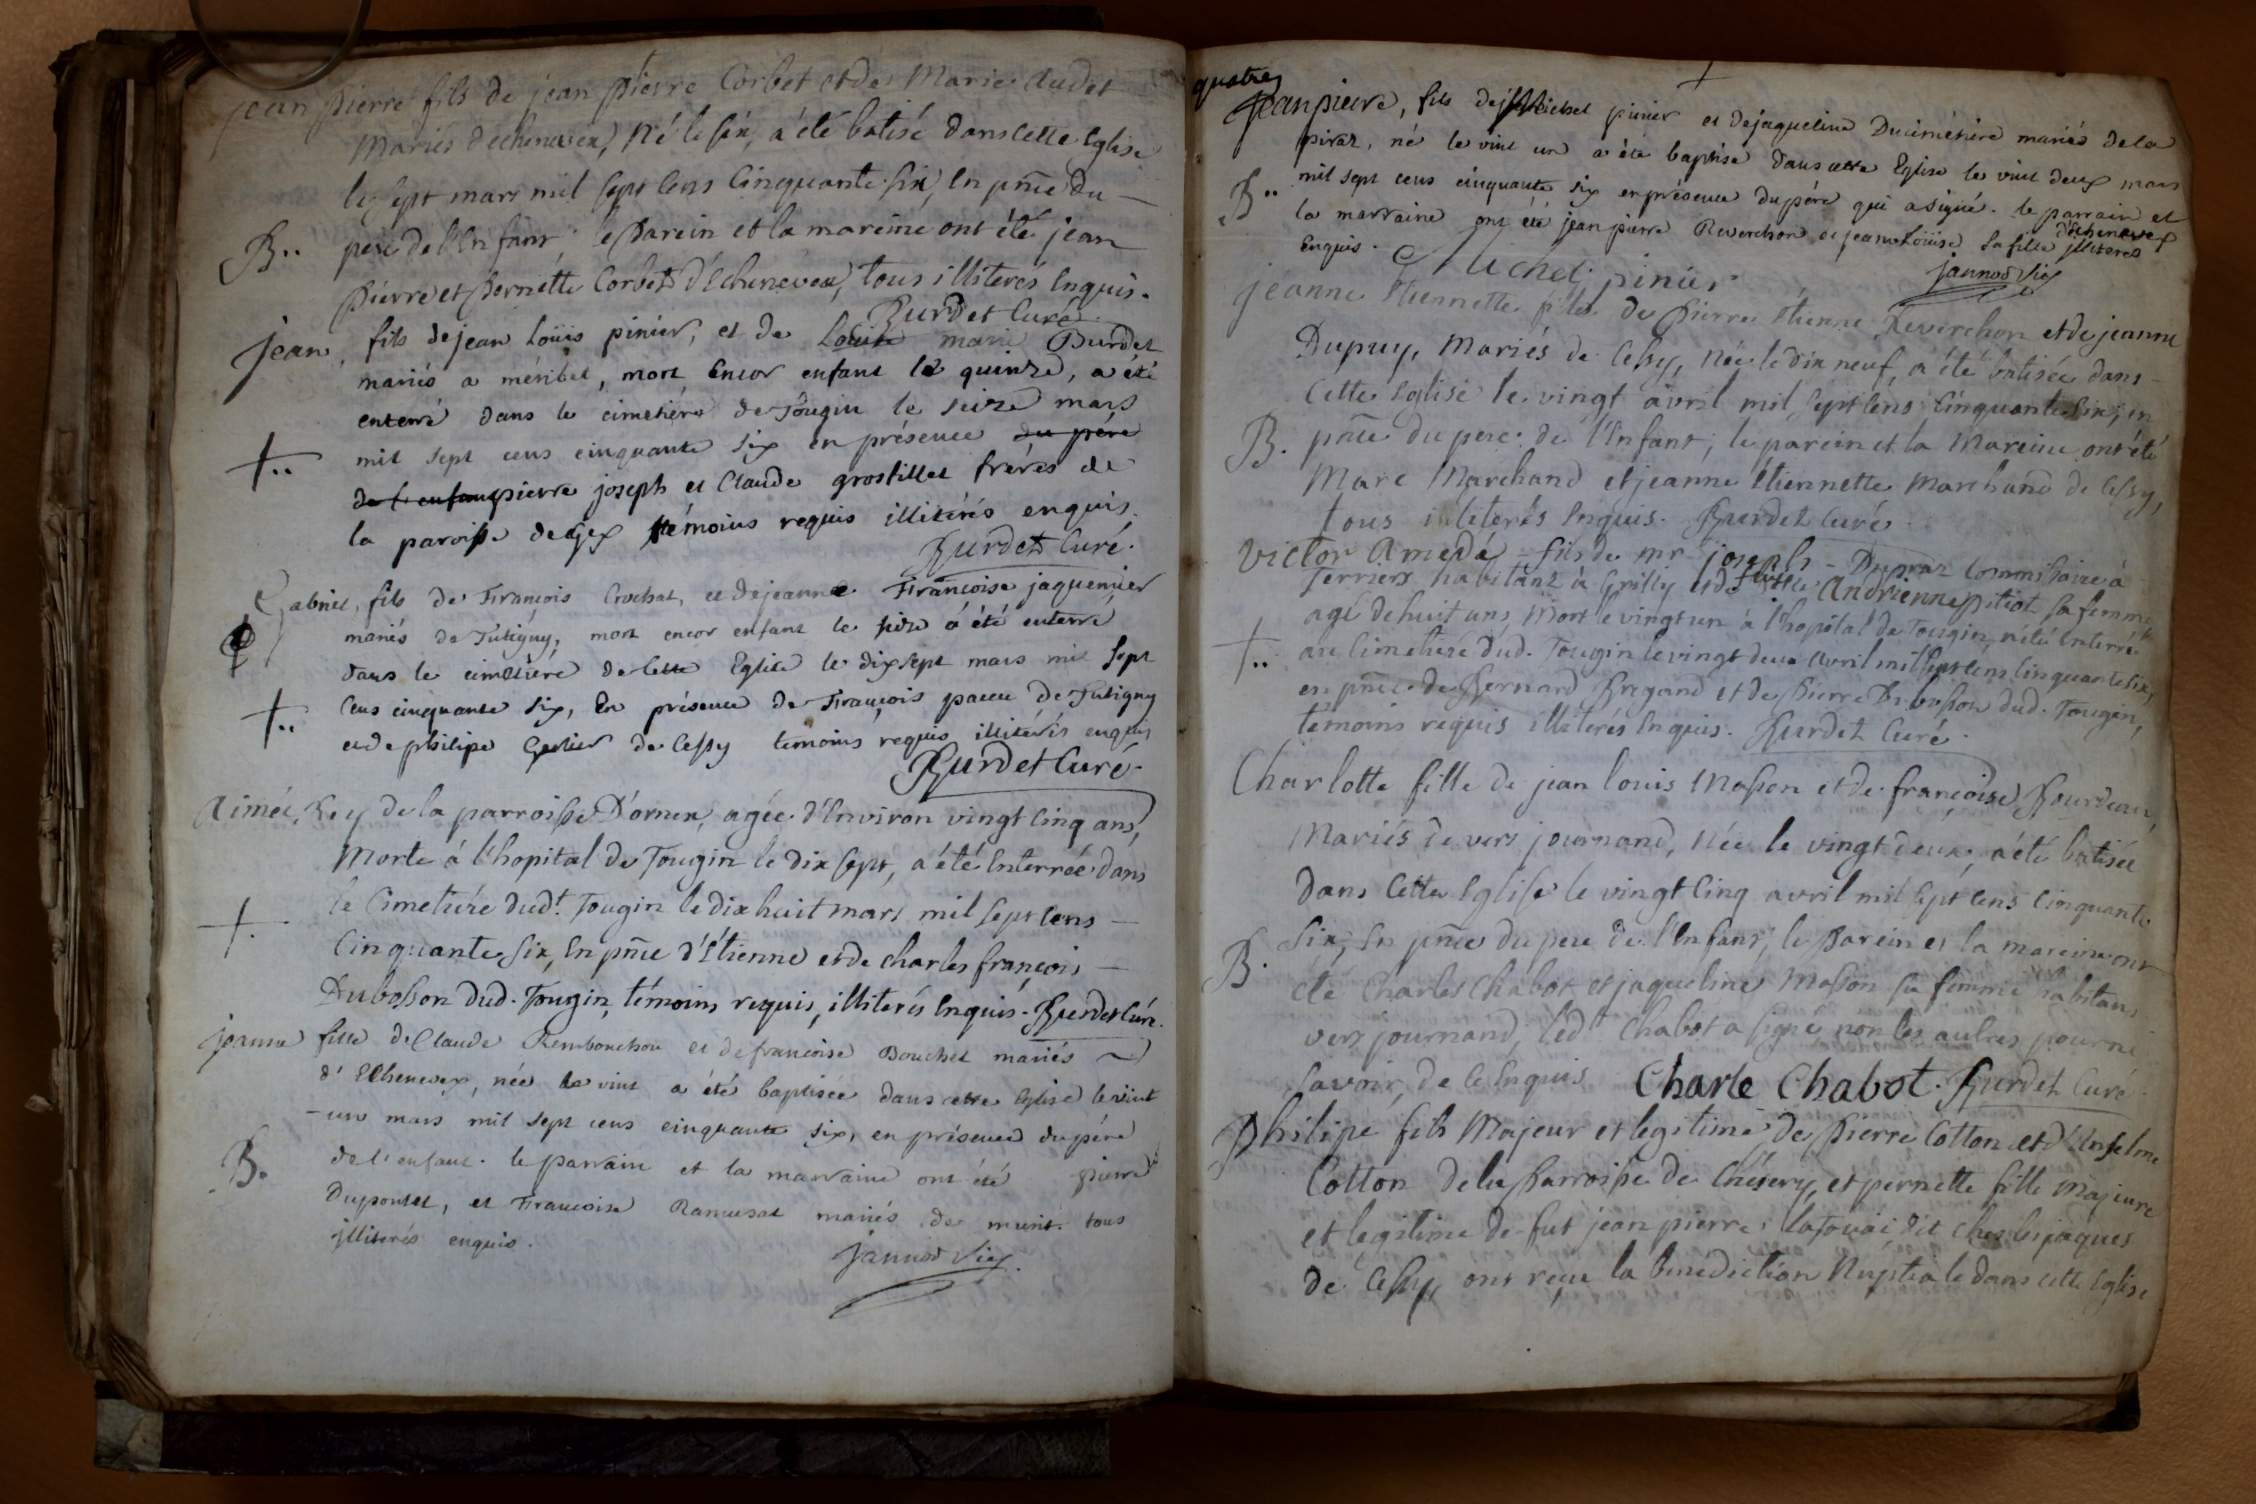 jean pierre fils de jean pierre Corbet et de Marie Audet
Mariés d'echenevex, Né le six, a été batisé dans cette Eglise
le sept mars mil sept Cens Cinquante Six, En pñce du
B.. pere de l'Enfant le Parein et la mareine ont été jean
pierre et pernette Corbet d'Echenevex, tous illiterés Enquis.
Burdet Curé.
jean, fils de jean Loüis pinier, et de Louise marie Burdet
mariés a méribel, mort Encor enfant le quinze, a été
enterré dans le cimetiére de Tougin le seize mars
+.. mil sept cens cinquante six en présence du pére
de l'enfant pierre joseph et Claude grostillet fréres de
la paroisse de Gex témoins requis illitérés enquis.
Burdet Curé.
Gabriel, fils de François Crochat, et de jeanne Françoise jaquemier
mariés de Tutigny, mort encor enfant le seize a été enterré
dans le cimetiére de Cette Eglise le dix sept mars mil Sept
+.. Cens cinquante six, En présence de François pacou de Tutigny
et de philipe Gerlier de Cessy temoins requis illitérés enquis
Burdet Curé.
Aimée Rey de la parroisse D'ornex, agée d'Environ vingt Cinq ans,
Morte á l'hopital de Tougin le dix Sept, a été Enterrée dans
+. le Cimetiére dud.t Tougin le dix huit mars mil Sept Cens
Cinquante Six, En pñce d'Etienne et de charles françois
Dubosson dud. Tougin, témoins requis, illiterés Enquis. Burdet Curé.
jeanne fille de Claude Rembouchon et de francoise Bouchet mariés
d'Echenevex, née le vint a été baptisée dans cette Eglise le vint
-un mars mil sept cens cinquante six, en présence du pére
B. de l'enfant. le parrain et la marraine ont été pierre
Dupontet, et Françoise Ramusat mariés de muris. tous
illiterés enquis.
jannod Vic.
quatre
+
jean pierre, fils de Michel pinier et de jaqueline Ducimétiére mariés de la
piraz, né le vint un a été baptisé dans cette Eglise le vint deux mars
B.. mil sept cens cinquante six en présence du pére qui a signé. le parrain et
la marraine ont été jean pierre Reverchon et jeanne Loüise sa fille d'echenevex illiterés
Enquis. Michel pinier jannod Vic
jeanne Etiennette fille de Pierre Etienne Reverchon et de jeanne
Dupuy, Mariés de Cessy, Née le dix neuf, a été batisée dans
Cette Eglise le vingt avril mil Sept Cens Cinquante Six, en
B. pñce du pere de l'Enfant, le parein et la Mareine ont été
Marc Marchand et jeanne Etiennette Marchand de Cessy,
tous illeterés Enquis. Burdet Curé.
Victor Amedé fils de mr joseph Dupraz Commissaire á
Terriers habitant à Grilly et de Andrienne pitiot sa femme
agé de huit ans, Mort le vingt un à l'hopital de Tougin, a été Enterré
+.. au Cimetiére dud. Tougin le vingt deux avril mil sept Cens Cinquante Six,
en pñce de Bernard Brigand et de Pierre Dubosson dud. Tougin,
témoins requis illiterés Enquis. Burdet Curé.
Charlotte fille de jean louis Masson et de françoise Bourdeur,
Mariés de vers journand, Née le vingt deux, a été batisée
Dans Cette Eglise le vingt Cinq avril mil Sept Cens Cinquante
B. Six, En pñce du pere de l'Enfant, le Parein et la mareine ont
été Charles Chabot et jaqueline Masson sa femme habitans
vers journand, led.t Chabot a signé, non les autres pour ne
Savoir, de Ce Enquis. Charle Chabot. Burdet Curé.
Philipe fils Majeur et legitime de Pierre Cotton et d'Anselme
Cotton de la Parroisse de Chésery, et pernette fille Majeure
et legitime de fut jean pierre Lajouai dit chez les jaques
de Cessy, ont reçu la Benediction Nuptiale dans cette Eglise